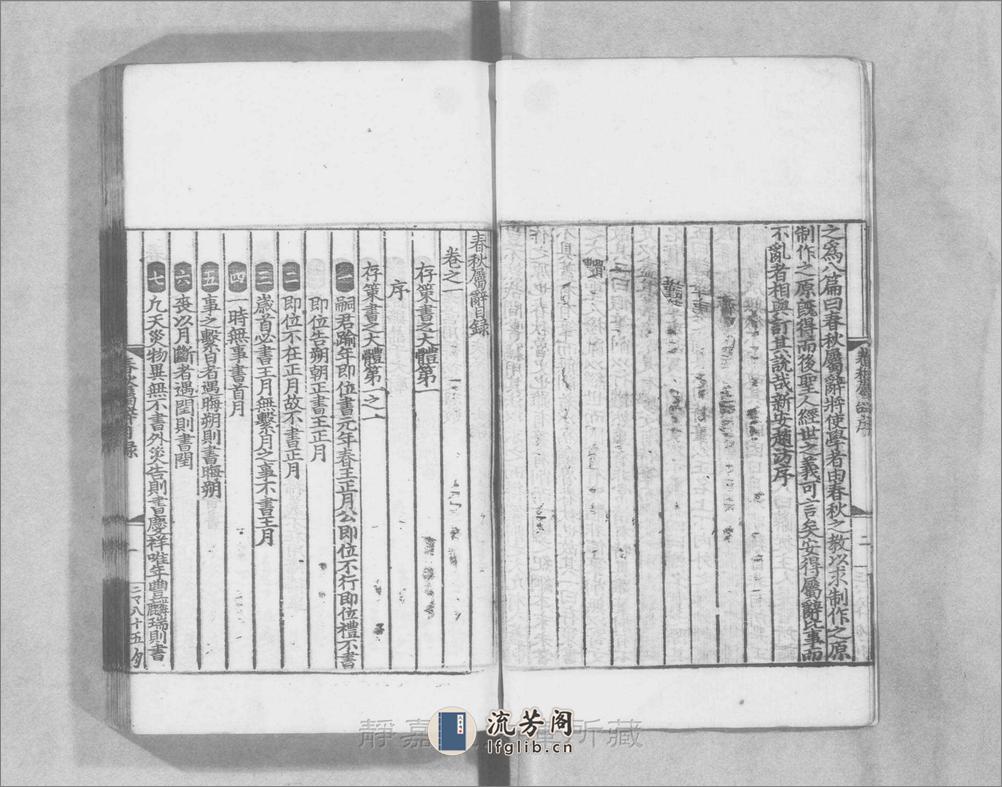 之爲八篇曰春秋屬辭將使學者由春秋之教以求制作之原
制作之原旣得而後聖人經世之義可言矣安得屬辭比事而
不亂者相與訂其說哉新安趙汸序
二
春秋屬辭目錄
卷之一
存策書之大體第一
序
存策書之大體第一之一
一 嗣君踰年即位書元年春王正月公即位不行即位禮不書
即位告朔朝正書王正月
二 即位不在正月故不書正月
三 歲首必書王月無繫月之事不書王月
四 一時無事書首月
五 事之繫日者遇晦朔則書晦朔
六 喪以月斷者遇閏則書閏
七 凡天災物異無不書外災告則書慶祥唯年豐麟瑞則書
春秋屬辭目錄
一
靜嘉
所藏
流芳阁
lfglib.cn